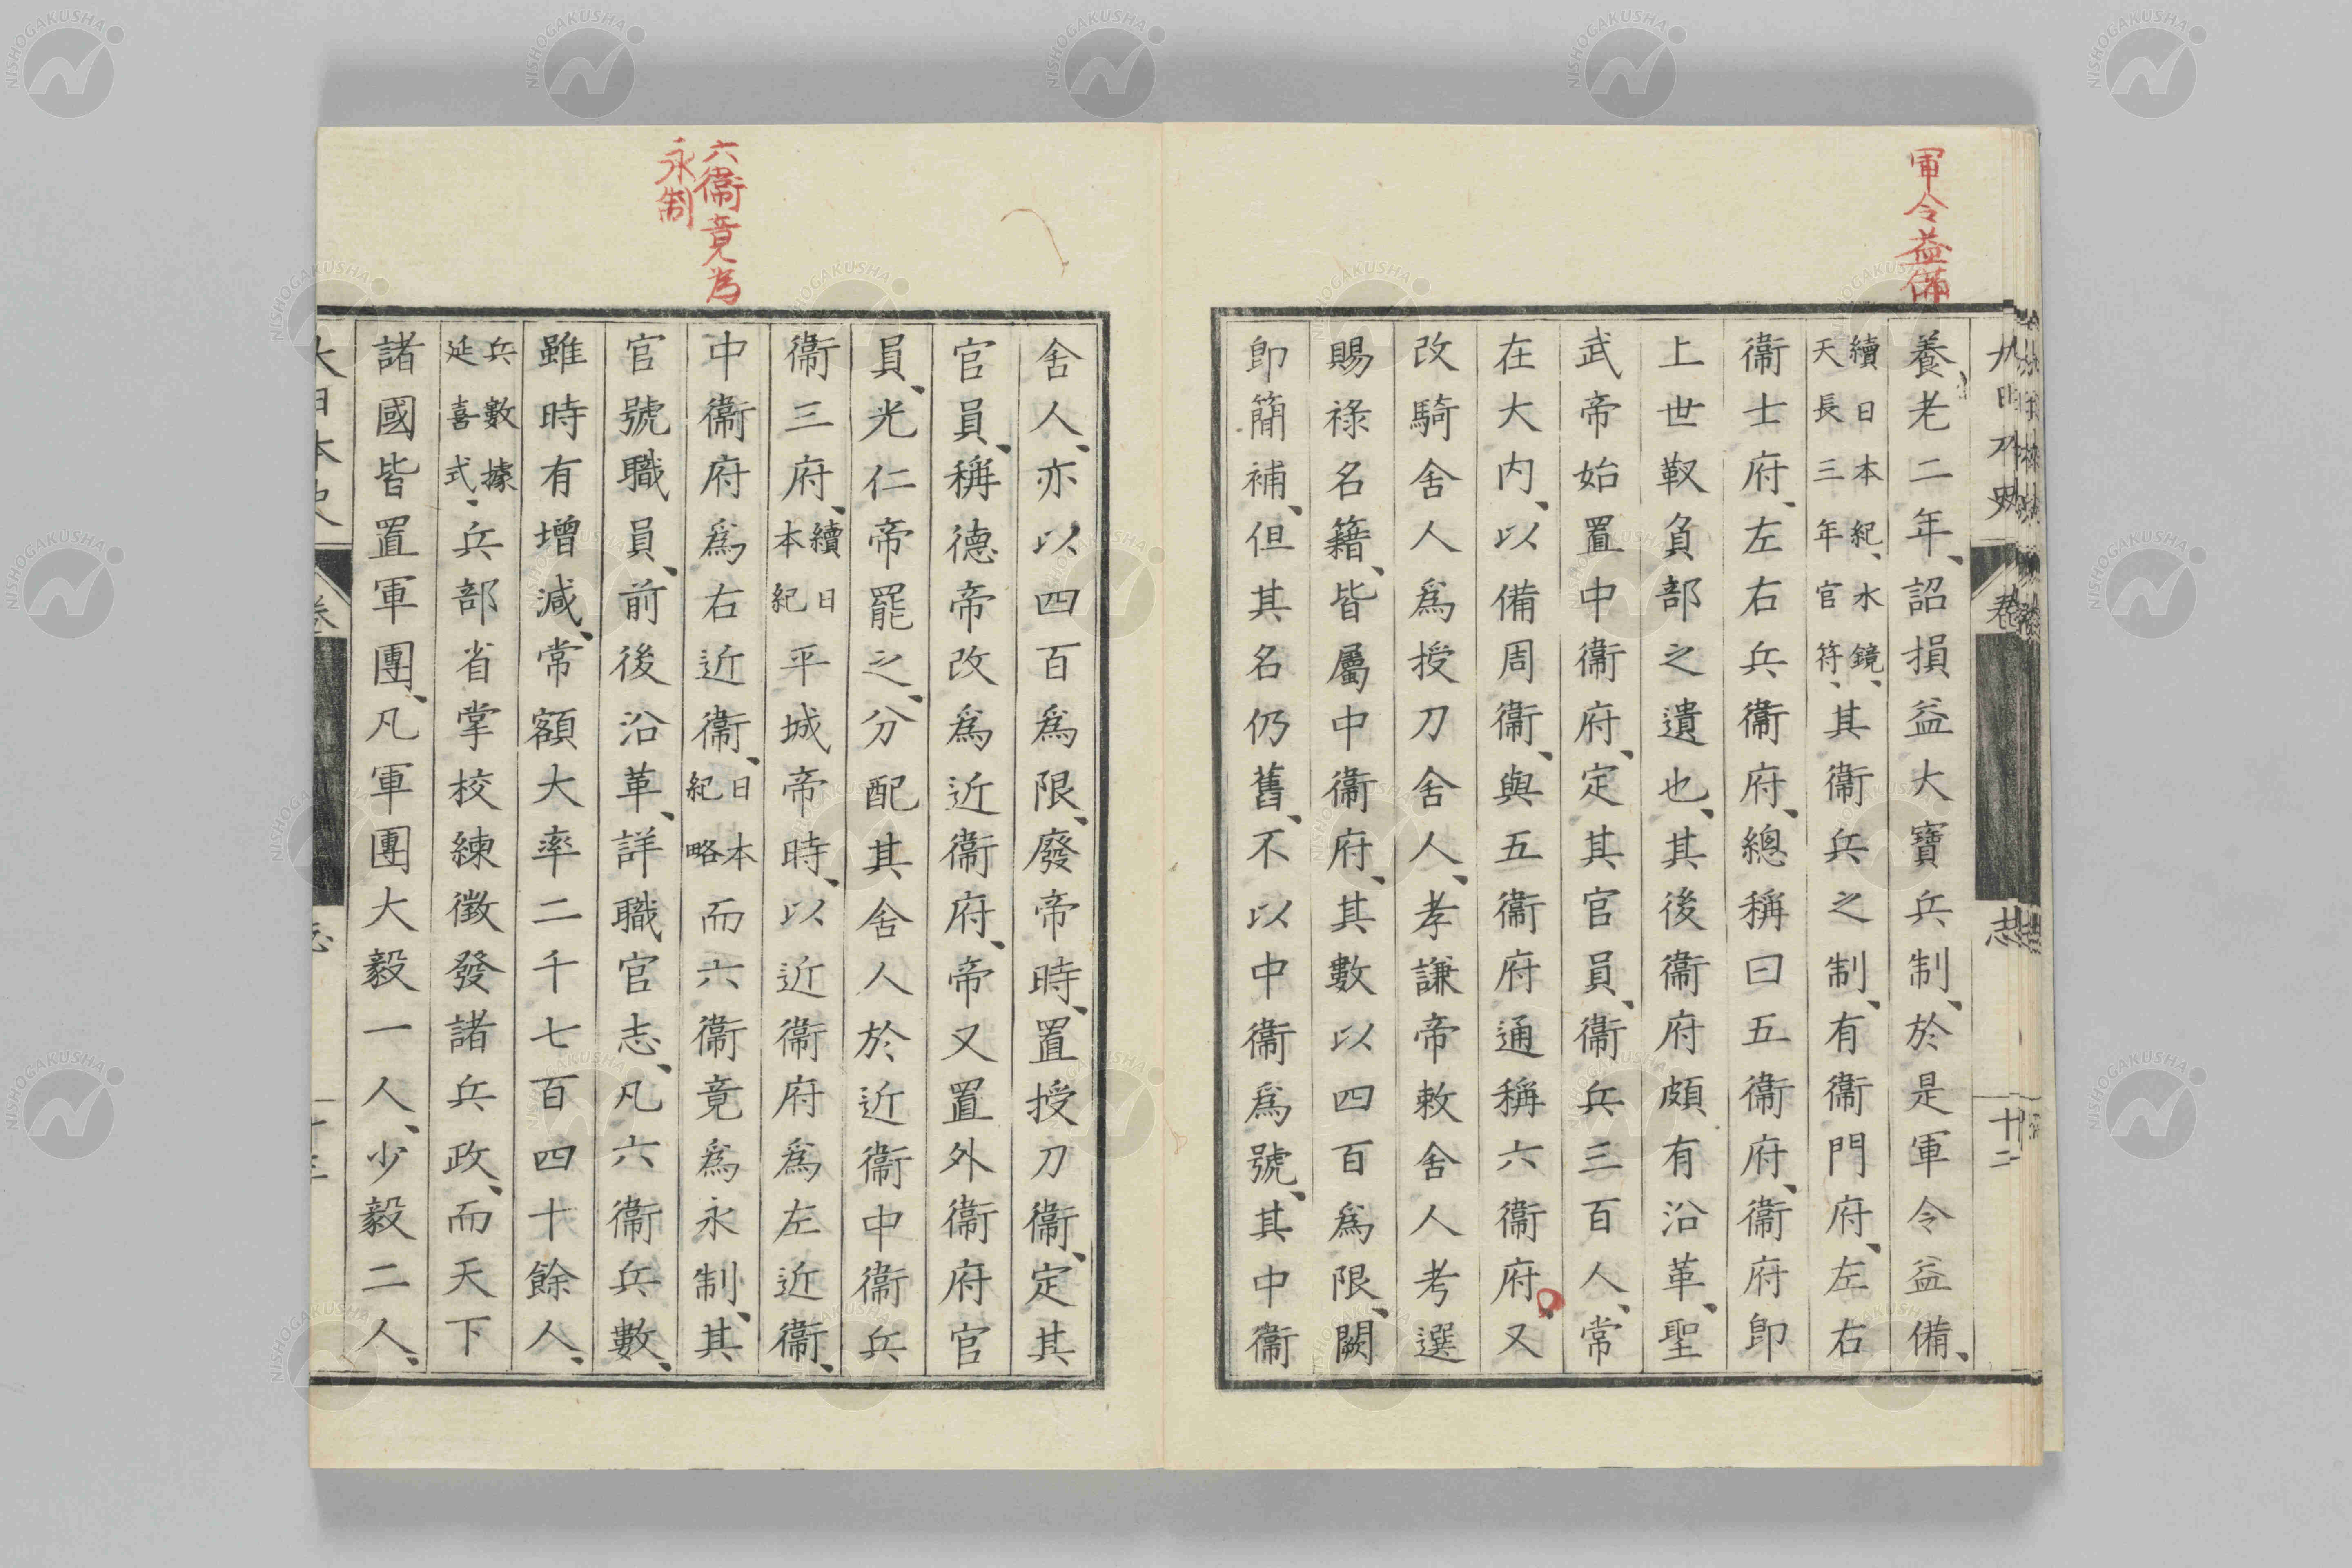 軍令益備
養老二年、詔損益大寶兵制、於是軍令益備、
續日本紀、水鏡、
天長三年官符、其衞兵之制、有衞門府、左右
衞士府、左右兵衞府、總稱曰五衞府、衞府卽
上世靫負部之遺也、其後衞府頗有沿革、聖
武帝始置中衞府、定其官員、衞兵三百人、常
在大內、以備周衞、與五衞府通稱六衞府、又
改騎舍人爲授刀舍人、孝謙帝敕舍人考選
賜祿名籍、皆屬中衞府、其數以四百爲限、闕
卽簡補、但其名仍舊、不以中衞爲號、其中衞
六衞竟為
永制
舍人、亦以四百爲限、廢帝時、置授刀衞、定其
官員、稱德帝改爲近衞府、帝又置外衞府官
員、光仁帝罷之、分配其舍人於近衞中衞兵
衞三府、續日本紀平城帝時、以近衞府爲左近衞、
中衞府爲右近衞、日本紀略而六衞竟爲永制、其
官號職員、前後沿革、詳職官志、凡六衞兵數、
雖時有增減、常額大率二千七百四十餘人、
兵數據
延喜式、兵部省掌校練徵發諸兵政、而天下
諸國皆置軍團、凡軍團大毅一人、少毅二人、
大日本史 卷